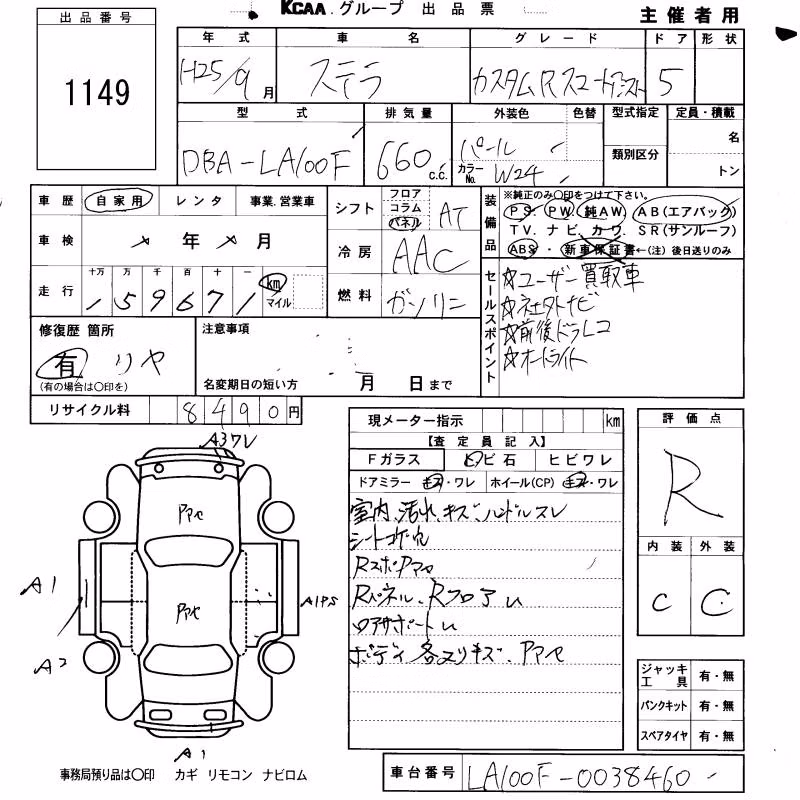 KCAA.グループ 出品票
主催者用
出品番号
1149
年式 車名 グレード ドア 形状
H25/9月 ステラ カスタムRスマートアシスト 5
型式 排気量 外装色 色替 型式指定 定員・積載
DBA-LA100F 660c.c. パール カラーNo. W24 類別区分 名 トン
車歴 自家用 レンタ 事業.営業車
シフト フロア コラム パネル AT
車検 年 月
冷房 AAC
走行 十万 万 千 百 十 一 km マイル
159671
燃料 ガソリン
装備品
※純正のみ○印をつけて下さい。
PS. PW. 純AW. AB(エアバック)
TV. ナビ. カワ. SR(サンルーフ)
ABS・新車保証書←(注)後日送りのみ
セールスポイント
☆ユーザー買取車
☆社外ナビ
☆前後ドラレコ
☆オートライト
修復歴 箇所
有 リヤ
(有の場合は○印を)
注意事項
名変期日の短い方 月 日まで
リサイクル料 8490円
現メーター指示 km
【査定員記入】
Fガラス ヒビ石 ヒビワレ
ドアミラー キズ・ワレ ホイール(CP) キズ・ワレ
室内、汚れ、キズ、ハンドルスレ
シートコゲ穴
Rスポアマセ
Rパネル、RフロアU
ロアサポートU
ボディ各部キズ、アマセ
評価点
R
内装 外装
C C
ジャッキ工具 有・無
パンクキット 有・無
スペアタイヤ 有・無
A3ワレ
アマセ
アマセ
A1
A2
A1PS
A1
事務局預り品は○印 カギ リモコン ナビロム
車台番号 LA100F-0038460